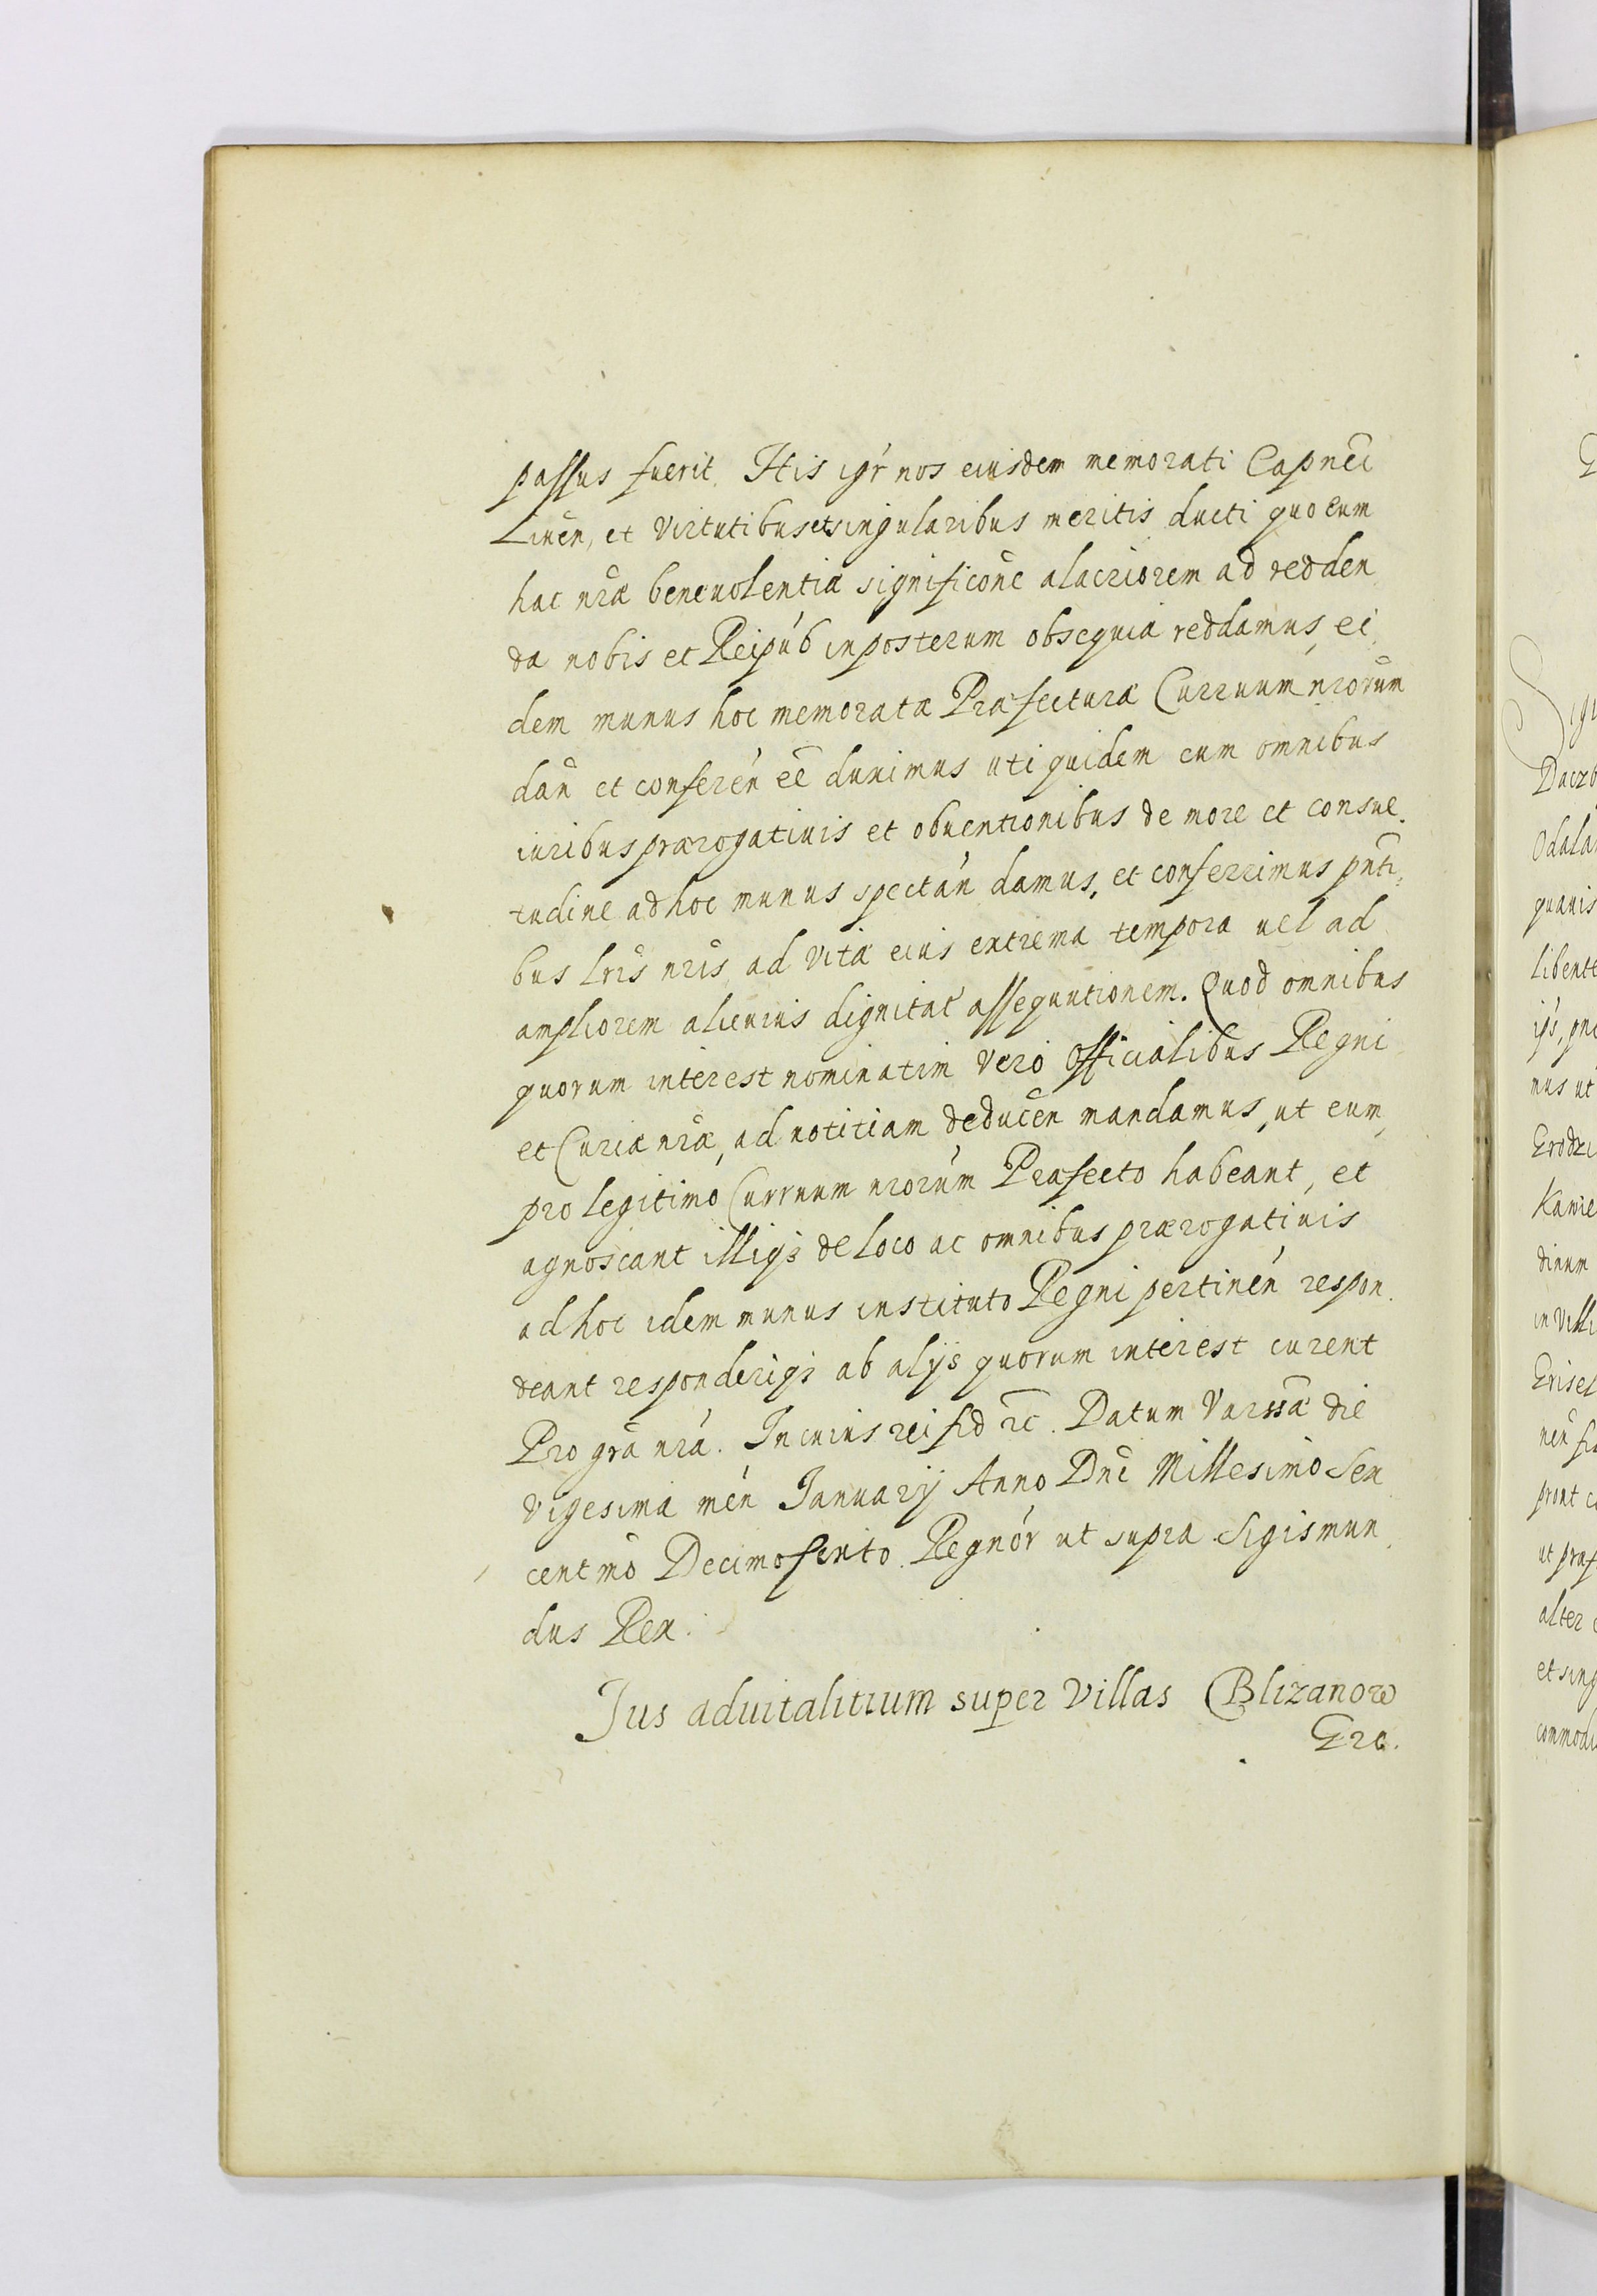 passus fuerit. His igr nos eiusdem memorati Capnei
Liuen, et virtutibus et singularibus meritis ducti quo eum
hac nrae beneuolentiae significone alacriorem ad redden
da nobis et Reipub inposterum obsequia reddamus, ei
dem munus hoc memoratae Praefecturae Curruum nrorum
dan et conferen ee duximus uti quidem cum omnibus
iuribus praerogatiuis et obuentionibus de more et consue.
tudine ad hoc munus spectan damus, et conferrimus pnti,
bus lris nris ad vitae eius extrema tempora uel ad
ampliorem alicuius dignitat assequutionem. Quod omnibus
quorum interest nominatim vero Officialibus Regni
et Curiae nrae, ad notitiam deducen mandamus, ut eum,
pro legitimo Curruum nrorum Praefecto habeant, et
agnoscant illiqs de loco ac omnibus praerogatiuis
ad hoc idem munus instituto Regni pertinen respon.
deant responderiqs ab alijs quorum interest curent
Pro gra nra. In cuius rei fid rc. Datum Varssae die
vigesima men Januarij Anno Dni Millesimo Sex
centmo Decimosexto. Regnor ut supra Sigismun
dus Rex.
Jus aduitalitium super villas Blizanow
Etc.
Sigi
Daczb
Odala
quauis
libente
ips, pne
mus ut
Grodzi
Kamie
dinum
in villi
Grisel
nen fi
prout c
ut praf
alter
et sing
commodi